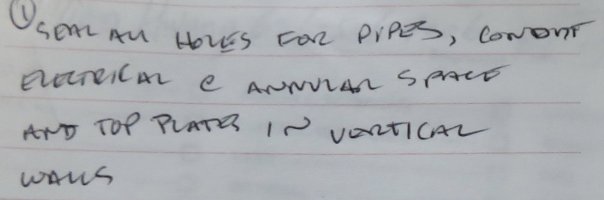 ① SEAL ALL HOLES FOR PIPES, CONDUIT
ELECTRICAL @ ANNULAR SPACE
AND TOP PLATES IN VERTICAL
WALLS